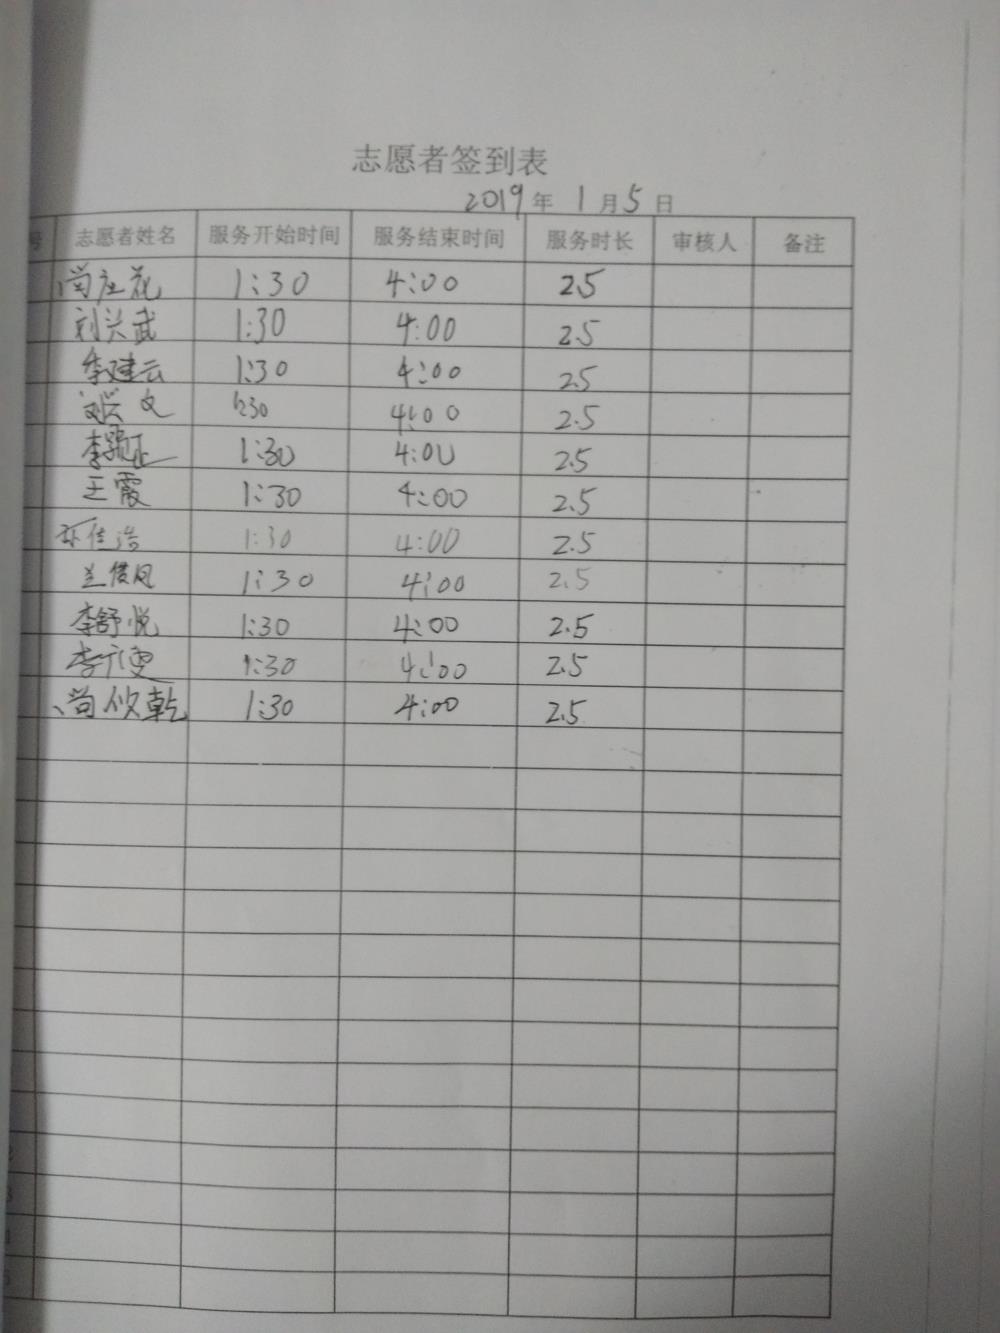 志愿者签到表
2019年 1月5日
号 志愿者姓名 服务开始时间 服务结束时间 服务时长 审核人 备注
尚庄花 1:30 4:00 2.5
刘兴武 1:30 4:00 2.5
李建云 1:30 4:00 2.5
刘兴文 1:30 4:00 2.5
1:30 4:00 2.5
王霞 1:30 4:00 2.5
佳浩 1:30 4:00 2.5
兰俊凤 1:30 4:00 2.5
李舒悦 1:30 4:00 2.5
李广更 1:30 4:00 2.5
尚攸乾 1:30 4:00 2.5